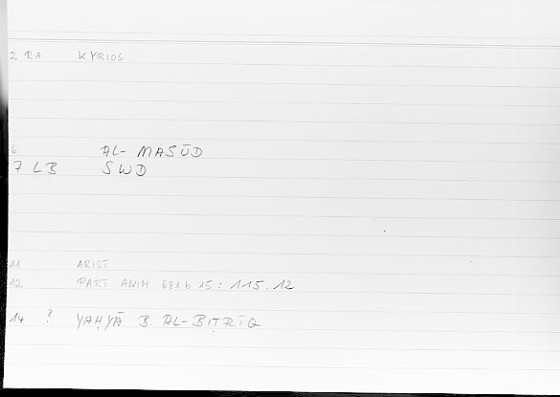 2 RA KYRIOS
6 AL-MASŪD
7 LB SWD
11 ARIST
12 PART ANIM 681b 15 : 115.12
14 ? YAḤYĀ B. AL-BIṬRĪQ